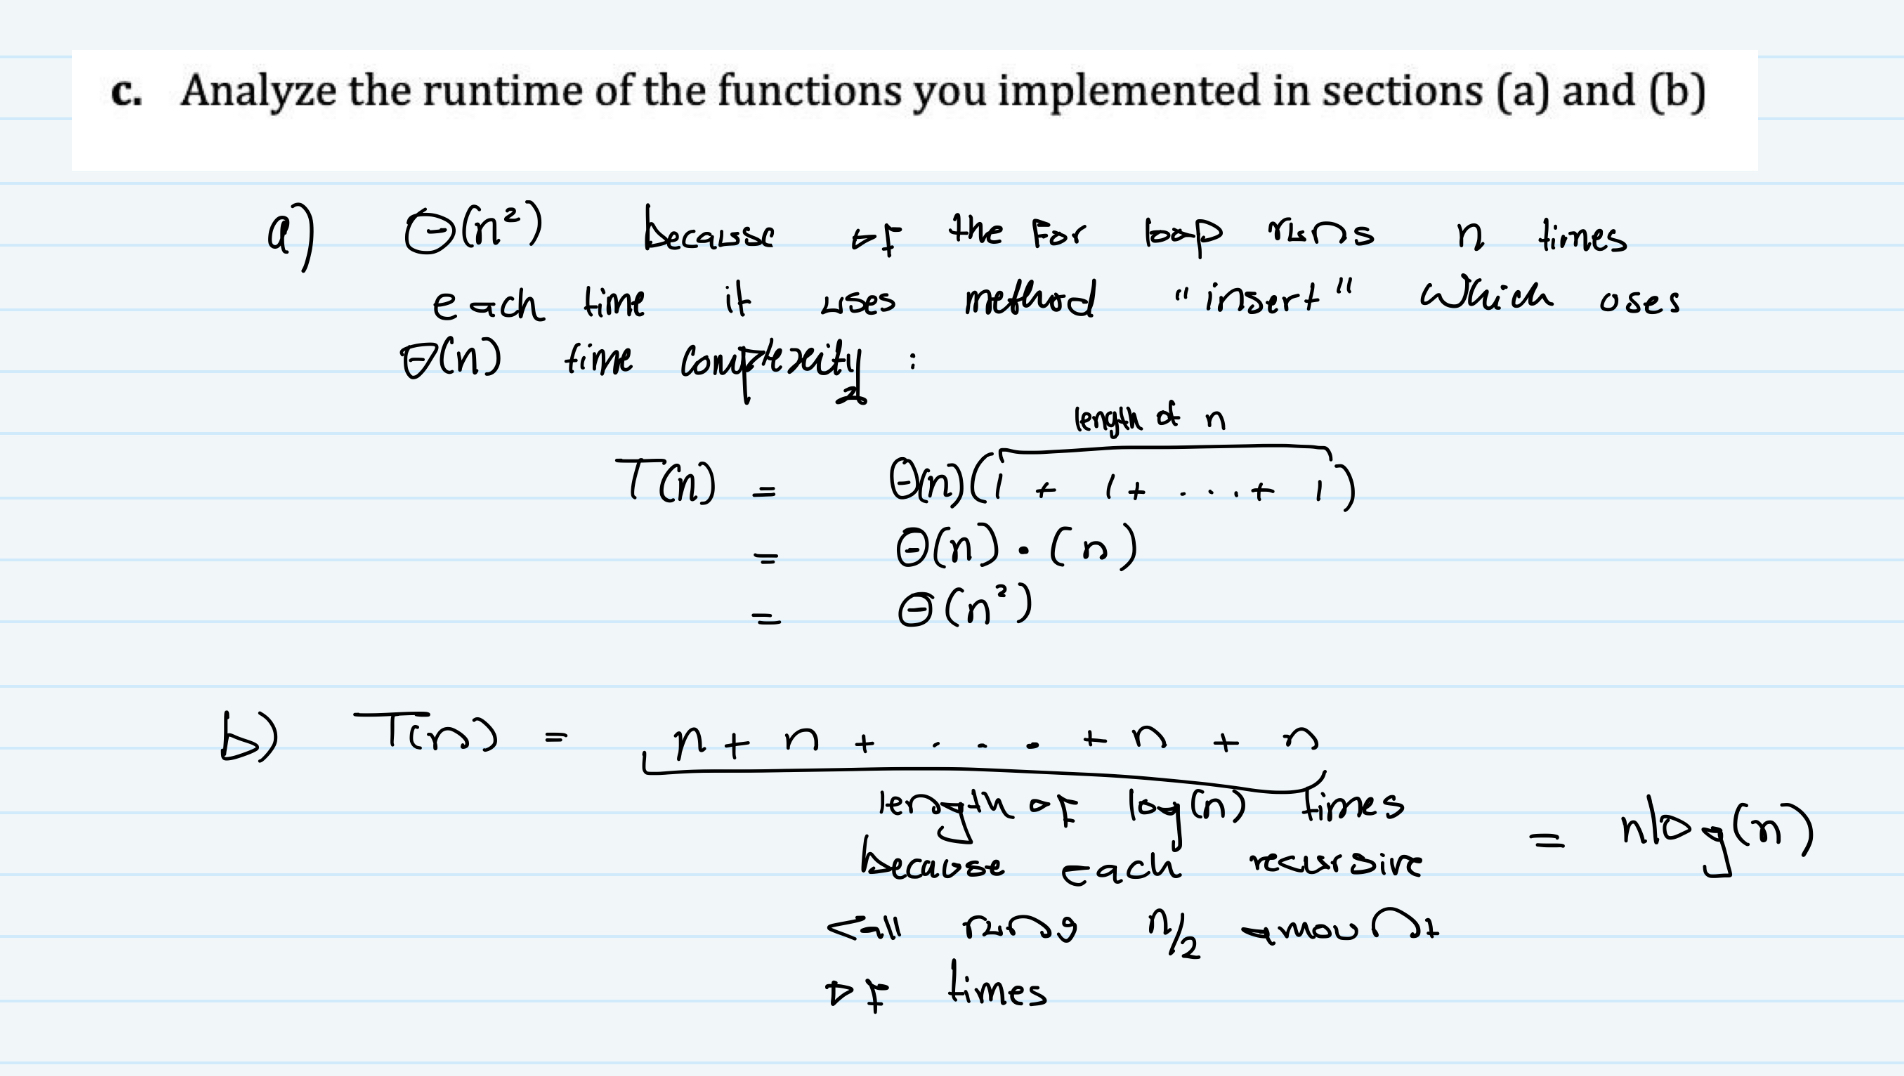 c. Analyze the runtime of the functions you implemented in sections (a) and (b)
a) Θ(n²) because of the For loop runs n times
each time it uses method "insert" which uses
Θ(n) time complexity :
length of n
T(n) = Θ(n)(1 + 1 + ... + 1)
= Θ(n) · (n)
= Θ(n²)
b) T(n) = n + n + . . . + n + n
length of log(n) times
because each recursive = nlog(n)
call runs n/2 amount
of times